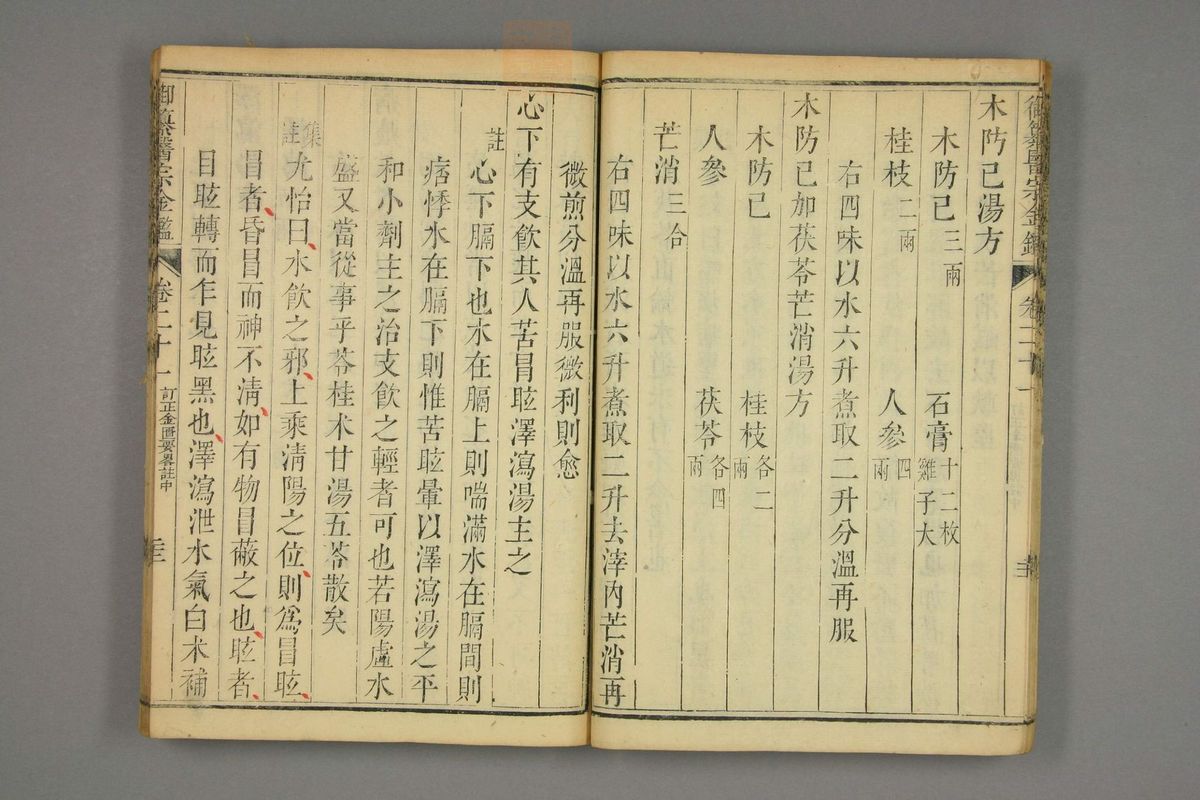 御纂醫宗金鑑 卷二十一
木防己湯方
木防己三兩 石膏十二枚雞子大
桂枝二兩 人參四兩
右四味以水六升煮取二升分溫再服
木防己加茯苓芒消湯方
木防己 桂枝各二兩
人參 茯苓各四兩
芒消三合
右四味以水六升煮取二升去滓內芒消再
微煎分溫再服微利則愈
心下有支飲其人苦冒眩澤瀉湯主之
註心下膈下也水在膈上則喘滿水在膈間則
痞悸水在膈下則惟苦眩暈以澤瀉湯之平
和小劑主之治支飲之輕者可也若陽虛水
盛又當從事乎苓桂朮甘湯五苓散矣
集註尤怡曰水飲之邪上乘清陽之位則為冒眩
冒者昏冒而神不清如有物冒蔽之也眩者
目眩轉而乍見眩黑也澤瀉泄水氣白朮補
御纂醫宗金鑑 卷二十一 訂正金匱要畧註中